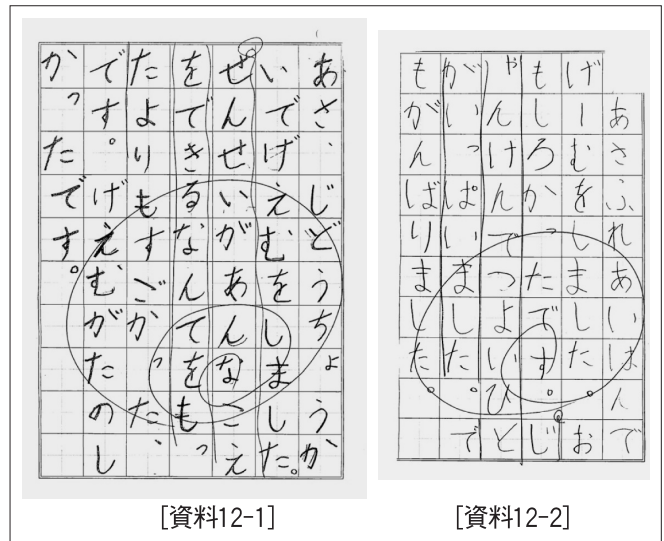 あさ、じどうちょうか
いでげえむをしました。
せんせいがあんなこえ
をできるなんてをもっ
たよりもすごかった、
です。げえむがたのし
かったです。
[資料12-1]
あさふれあいはんで
げーむをしました。お
もしろかったです。じ
ゃんけんでつよいひと
がいっぱいました。で
もがんばりました。
[資料12-2]